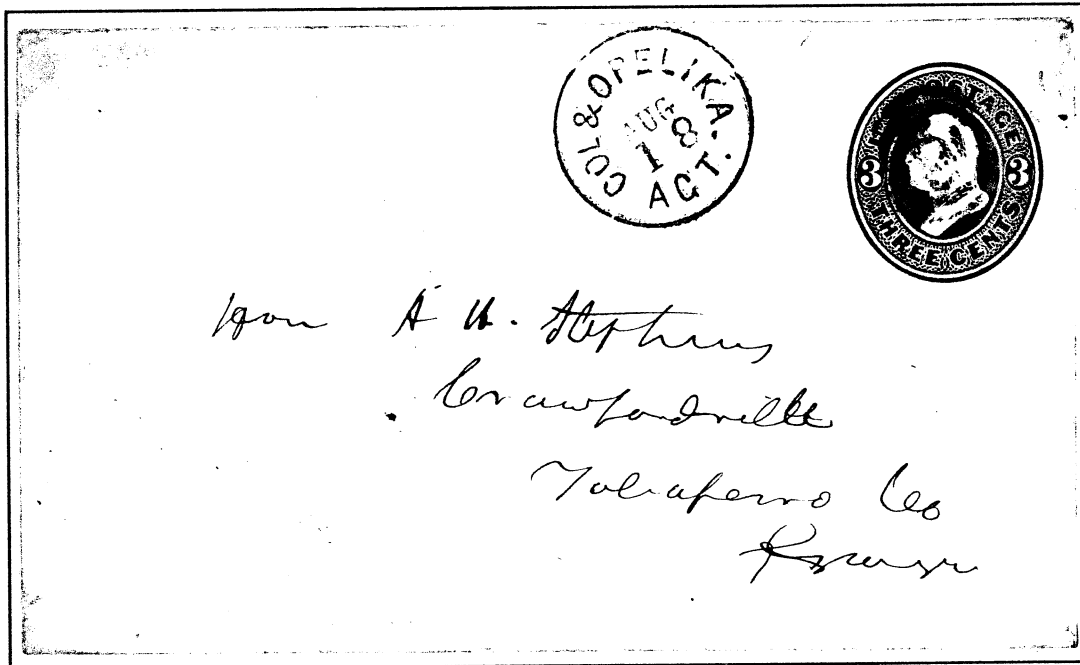 COL & OPELIKA. AGT.
AUG
18
POSTAGE
3 3
THREE CENTS
Hon A H. Stephens
Crawfordville
Taliaferro Co